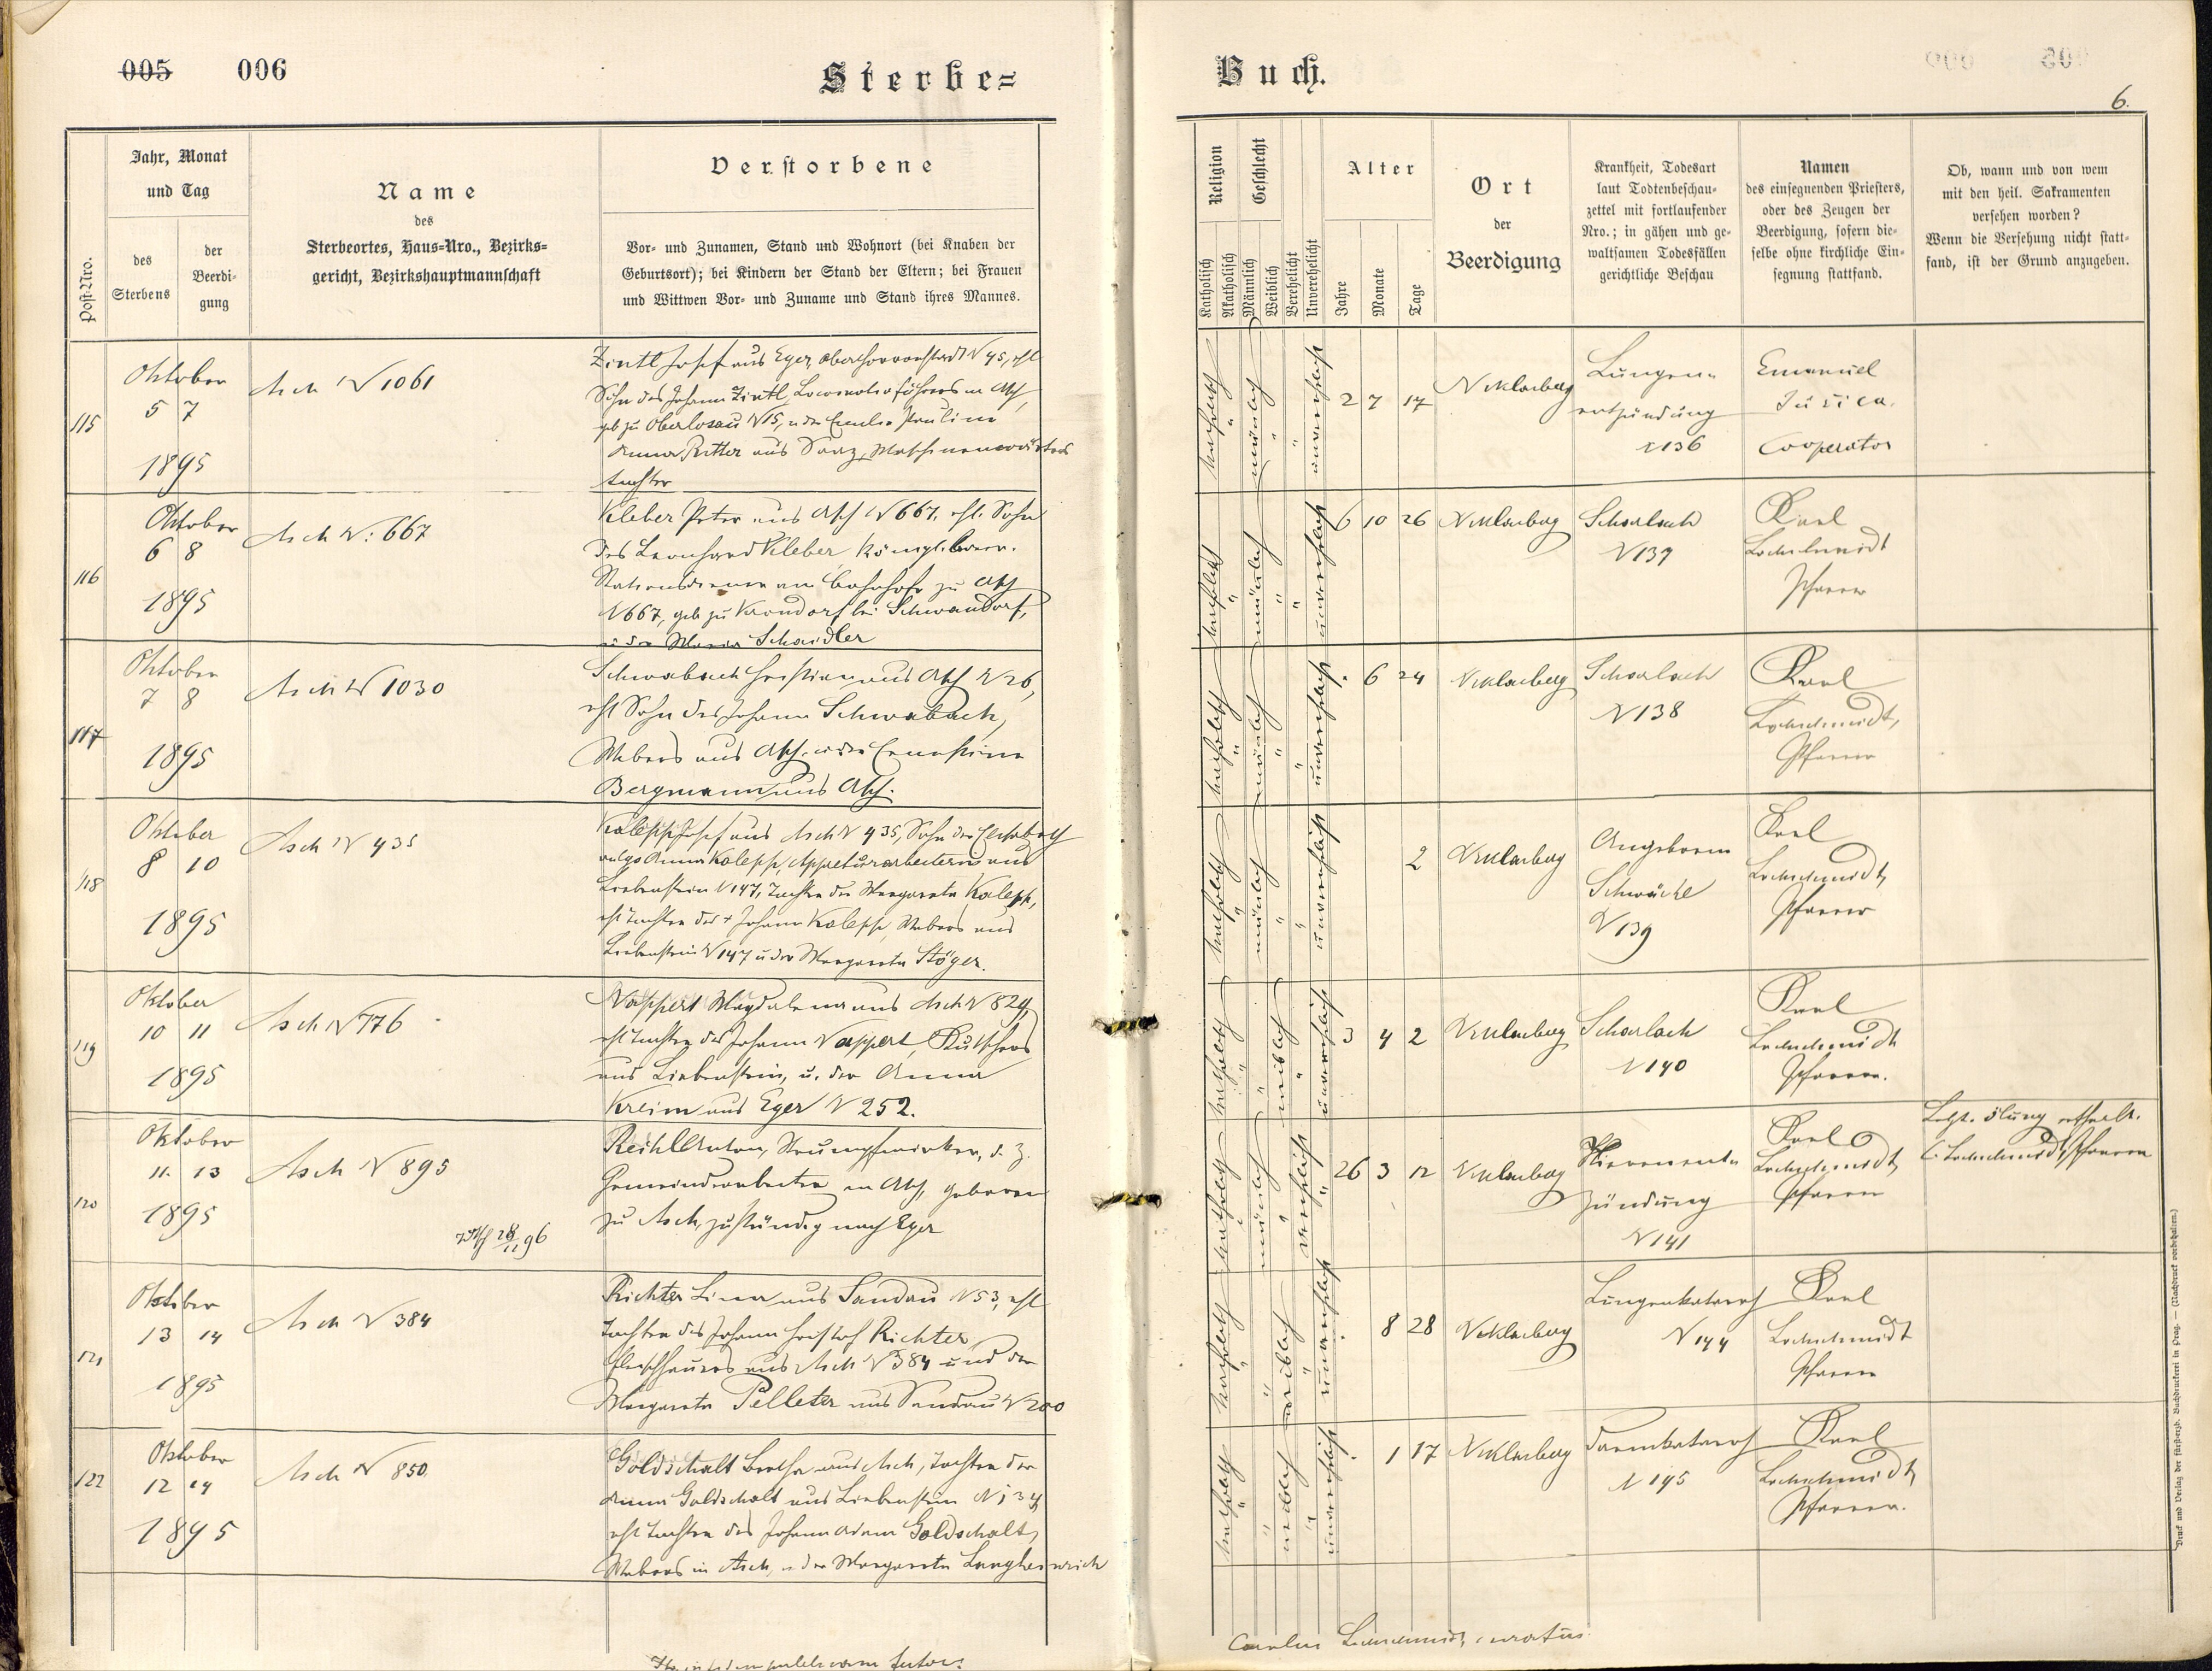 005 006
Sterbe=
Buch.
6.
Post-Nro.
Jahr, Monat
und Tag
des
Sterbens
der
Beerdi-
gung
Name
des
Sterbeortes, Haus-Nro., Bezirks-
gericht, Bezirkshauptmannschaft
Verstorbene
Vor- und Zunamen, Stand und Wohnort (bei Knaben der
Geburtsort); bei Kindern der Stand der Eltern; bei Frauen
und Wittwen Vor- und Zuname und Stand ihres Mannes.
Religion
Katholisch
Akatholisch
Geschlecht
Männlich
Weiblich
Verehelicht
Unverehelicht
Alter
Jahre
Monate
Tage
Ort
der
Beerdigung
Krankheit, Todesart
laut Todtenbeschau-
zettel mit fortlaufender
Nro.; in gähen und ge-
waltsamen Todesfällen
gerichtliche Beschau
Namen
des einsegnenden Priesters,
oder des Zeugen der
Beerdigung, sofern die-
selbe ohne kirchliche Ein-
segnung stattfand.
Ob, wann und von wem
mit den heil. Sakramenten
versehen worden?
Wenn die Versehung nicht statt-
fand, ist der Grund anzugeben.
115
Oktober
5 7
1895
Asch N 1061
Zintl Josef aus Eger, N 45, ehl
Sohn des Johann Zintl, Locomotivführers in Asch,
geb zu Oberlosau N 15, u der Paulina
Anna Ritter aus Saaz, Maschinenwärters
tochter
katholisch männlich unverehelicht
2 7 17
Niklasberg
Lungen-
entzündung
N 136
Emanuel
Cooperator
116
Oktober
6 8
1895
Asch N: 667
Kleber Peter aus Asch N 667, ehl. Sohn
des Leonhard Kleber Königl. bair.
Stationsdieners am Bahnhofe zu Asch
N 667, geb zu Krondorf bei Schwandorf,
u der Maria Schaidler
katholisch männlich unverehelicht
6 10 26
Niklasberg
Scharlach
N 137
Karl
Lochschmidt
Pfarrer
117
Oktober
7 8
1895
Asch N 1030
Schwabach Christian aus Asch N 26,
ehl Sohn des Johann Schwabach,
Webers aus Asch u der Ernestine
Bergmann aus Asch.
katholisch männlich unverehelicht
6 24
Niklasberg
Scharlach
N 138
Karl
Lochschmidt,
Pfarrer
118
Oktober
8 10
1895
Asch N 435
Kolepp Josef aus Asch N 435, Sohn der Elisabeth
vulgo Anna Kolepp, Appreturarbeiterin aus
Liebenstein N 147, Tochter der Margareta Kolepp,
ehl Tochter des + Johann Kolepp, Webers aus
Liebenstein N 147 u der Margareta Stöger.
katholisch männlich unverehelicht
2
Niklasberg
Angeborene
Schwäche
N 139
Karl
Lochschmidt,
Pfarrer
119
Oktober
10 11
1895
Asch N 776
Nappert Magdalena aus Asch N 824,
ehl Tochter des Johann Nappert, Kutschers
aus Liebenstein, u. der Anna
Kreim aus Eger N 252.
katholisch weiblich unverehelicht
3 4 2
Niklasberg
Scharlach
N 140
Karl
Lochschmidt
Pfarrer.
120
Oktober
11. 13
1895
Asch N 895
Reihl Anton, Strumpfwirker, d. Z.
Gemeindearbeiter in Asch, geboren
zu Asch, zuständig nach Eger
katholisch männlich verehelicht
26 3 12
Niklasberg
Nierenent-
zündung
N 141
Karl
Lochschmidt,
Pfarrer
Letzte Ölung ertheilt.
Lochschmidt, Pfarrer
121
Oktober
13 14
1895
Asch N 384
Richter Lina aus Sandau N 53, ehl
Tochter des Johann Christof Richter,
Fleischhauers aus Asch N 384 und der
Margareta Pelleter aus Sandau N 200
katholisch weiblich unverehelicht
8 28
Niklasberg
Lungenkatarrh
N 144
Karl
Lochschmidt
Pfarrer
122
Oktober
12 14
1895
Asch N 850
Goldschalt Bertha aus Asch, Tochter der
Anna Goldschalt aus Liebenstein N 134,
ehl Tochter des Johann Adam Goldschalt,
Webers in Asch, u der Margareta Langheinrich
katholisch weiblich unverehelicht
1 17
Niklasberg
Darmkatarrh
N 145
Karl
Lochschmidt,
Pfarrer.
Carolus Lochschmidt, curatus
Druck und Verlag der fürsterzb. Buchdruckerei in Prag. — (Nachdruck vorbehalten.)